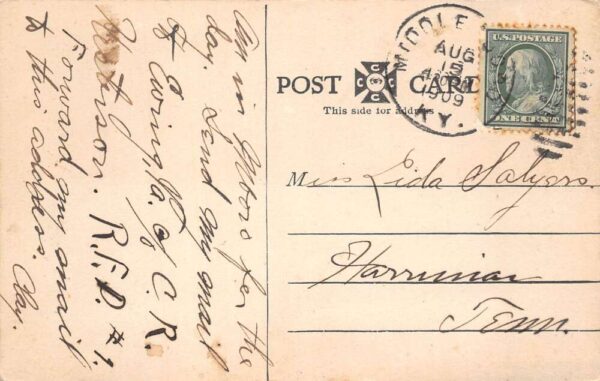 Am in M'boro for the
day. Send my mail
to Ewing, Va. c/o C. R.
R.F.D. #1.
Forward my mail
to this address.
Clay.
POST CARD
This side for address
MIDDLE
AUG
15
1909
KY.
U.S. POSTAGE
ONE CENT
Miss Lida Salyers.
Harriman
Tenn.